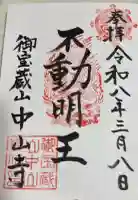 奉拝
令和八年三月八日
不動明王
御宝蔵山中山寺